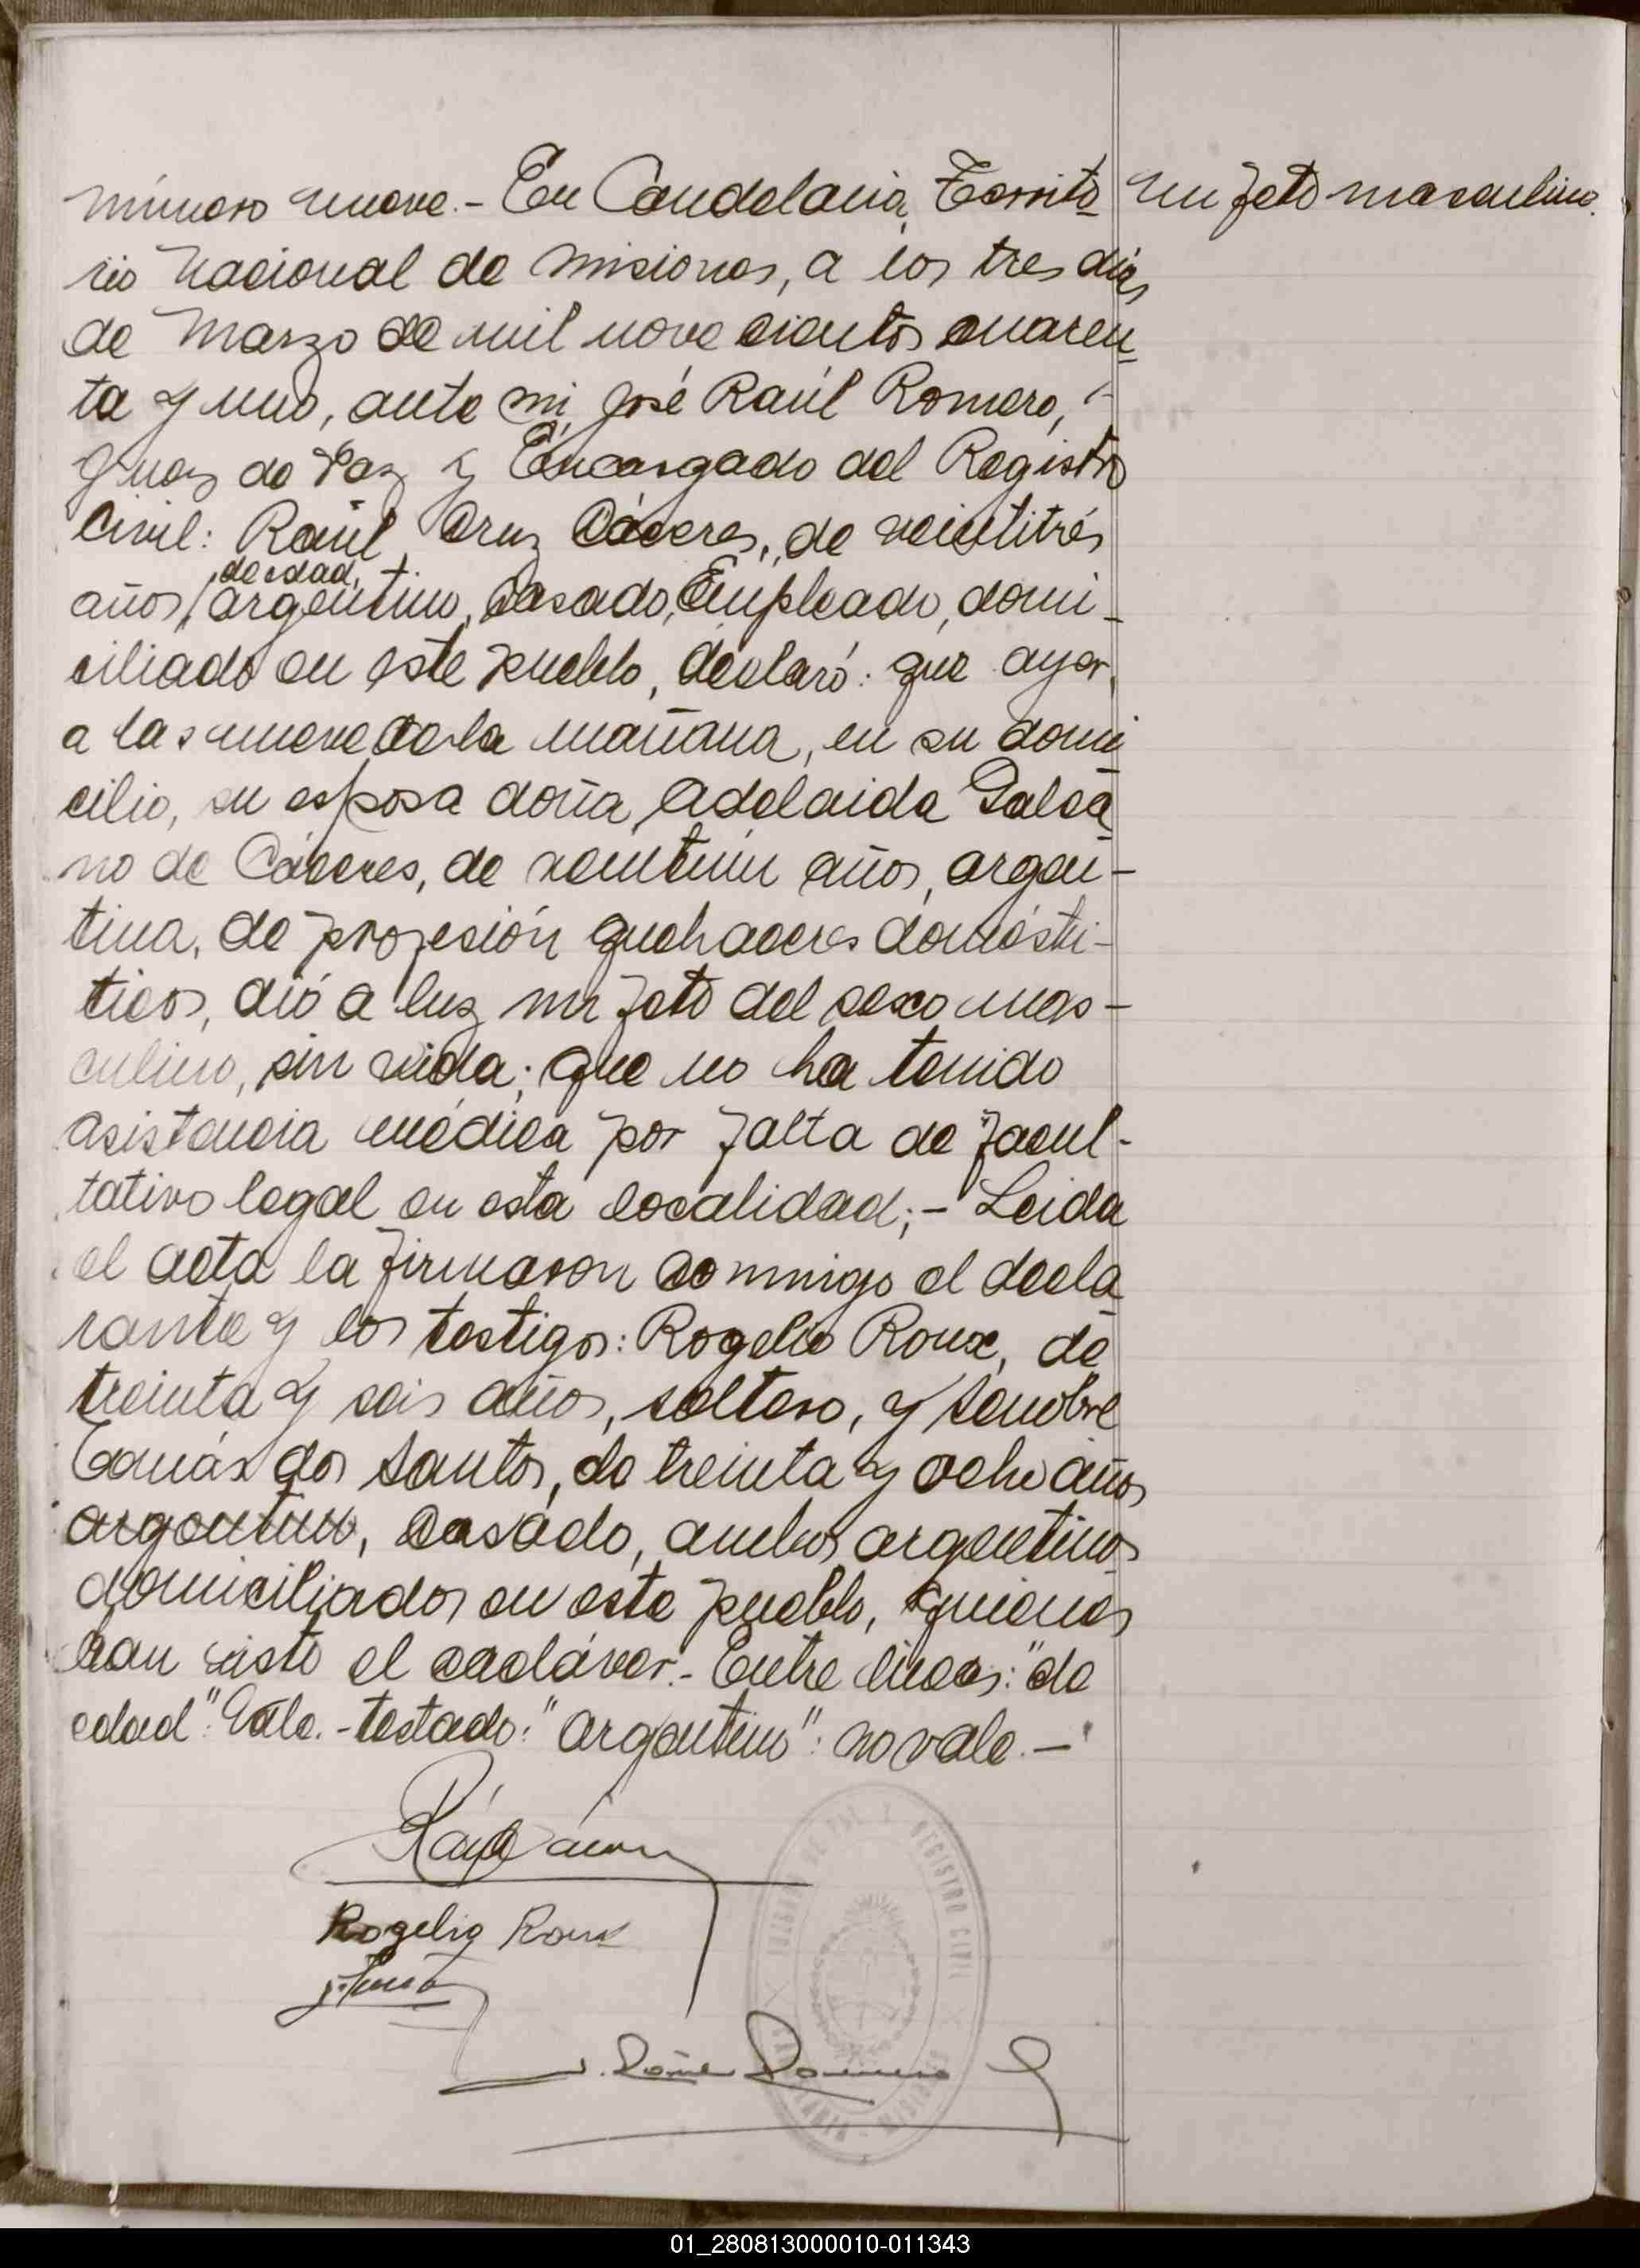 número nueve.- En Candelaria, Territo-
un feto masculino.
rio Nacional de Misiones, a los tres días
de Marzo de mil novecientos cuaren-
ta y uno, ante mi, José Raúl Romero,
Juez de Paz y Encargado del Registro
Civil: Raúl Cruz Cáceres, de veintitrés
de edad,
años, argentino, casado, Empleado, domi-
ciliado en este pueblo, declaró: que ayer,
a las nueve de la mañana, en su domi
cilio, su esposa doña Adelaida Galea
no de Cáceres, de veintiún años, argen-
tina, de profesión quehaceres domésti-
ticos, dió a luz un feto del sexo mas-
culino, sin vida; que no ha tenido
asistencia médica por falta de facul-
tativo legal en esta localidad;- Leida
el acta la firmaron conmigo el decla
rante y los testigos: Rogelio Roux, de
treinta y seis años, soltero, y
Tomás dos Santos, de treinta y ocho años
argentino, casado, ambos argentinos
domiciliados en este pueblo, quienes
han visto el cadáver.- Entre lineas: "de
edad": Vale.-testado: "argentino": no vale.-
Rogelio Roux
J. Raúl Romero
JUZGADO DE PAZ Y REGISTRO CIVIL
MISIONES
01_280813000010-011343